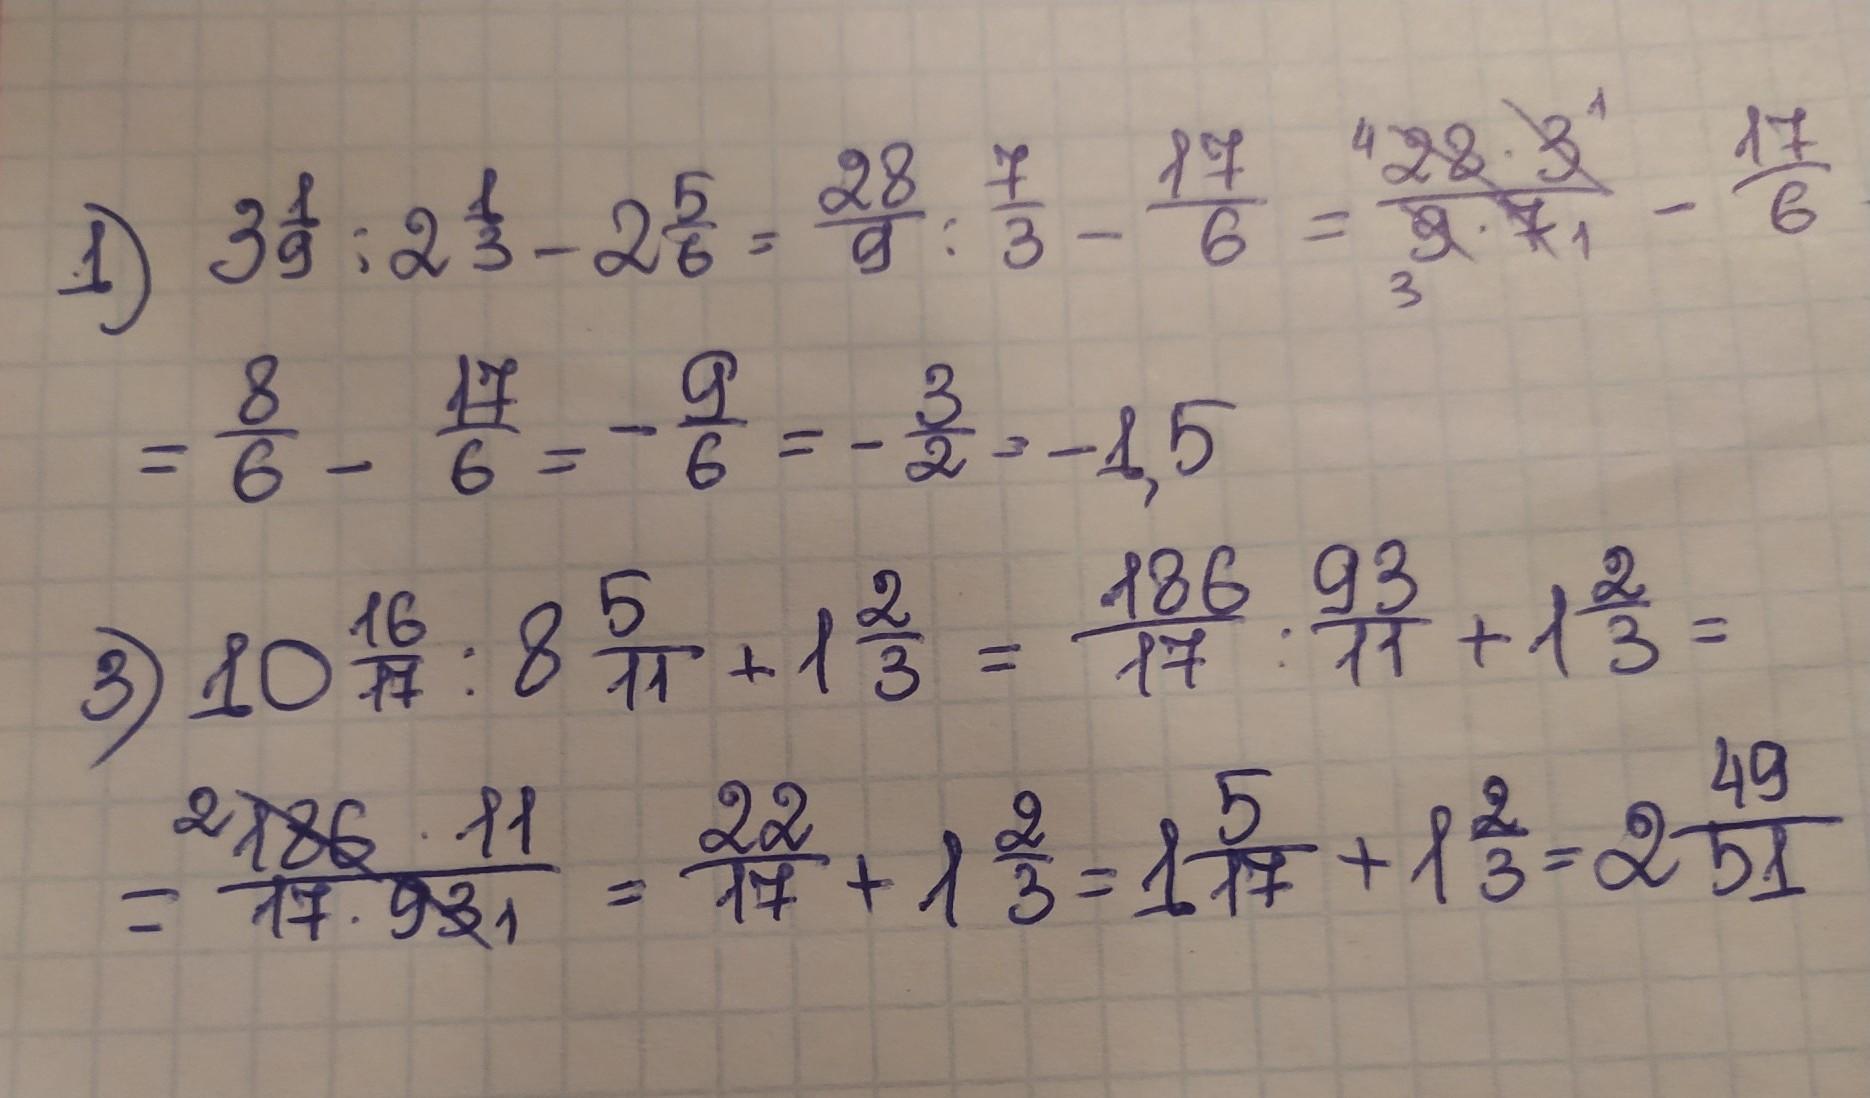 1) 3 1/9 : 2 1/3 - 2 5/6 = 28/9 : 7/3 - 17/6 = 4 28 · 3 1 / 3 9 · 7 1 - 17/6
= 8/6 - 17/6 = - 9/6 = - 3/2 = -1,5
3) 10 16/17 : 8 5/11 + 1 2/3 = 186/17 : 93/11 + 1 2/3 =
= 2 186 · 11 / 17 · 93 1 = 22/17 + 1 2/3 = 1 5/17 + 1 2/3 = 2 49/51